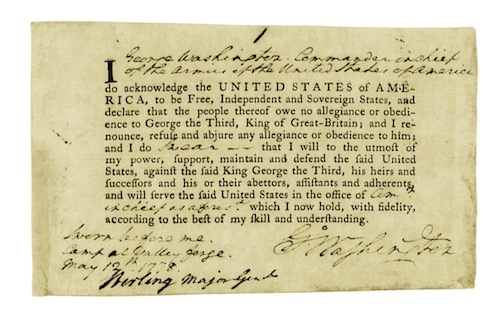 1
I George Washington, Commander in chief
of the Armies of the United States of America
do acknowledge the UNITED STATES of AME-
RICA, to be Free, Independent and Sovereign States, and
declare that the people thereof owe no allegiance or obedi-
ence to George the Third, King of Great-Britain; and I re-
nounce, refuſe and abjure any allegiance or obedience to him;
and I do swear — that I will to the utmoſt of
my power, ſupport, maintain and defend the ſaid United
States, againſt the ſaid King George the Third, his heirs and
ſucceſſors and his or their abettors, aſſiſtants and adherents,
and will ſerve the ſaid United States in the office of Com
in chief as aforesd. which I now hold, with fidelity,
according to the beſt of my ſkill and underſtanding.
Sworn before me
Camp at Valley forge
May 12th 1778
Stirling Major Genl
Go Washington